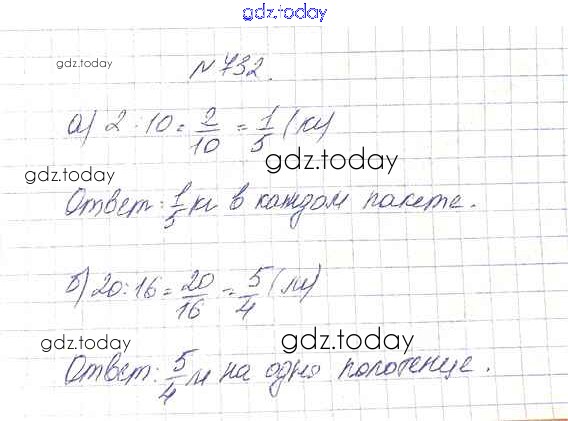 gdz.today
gdz.today
№732.
а) 2 : 10 = 2/10 = 1/5 (кг)
gdz.today
gdz.today
Ответ: 1/5 кг в каждом пакете.
б) 20 : 16 = 20/16 = 5/4 (м)
gdz.today
gdz.today
Ответ: 5/4 м на одно полотенце.